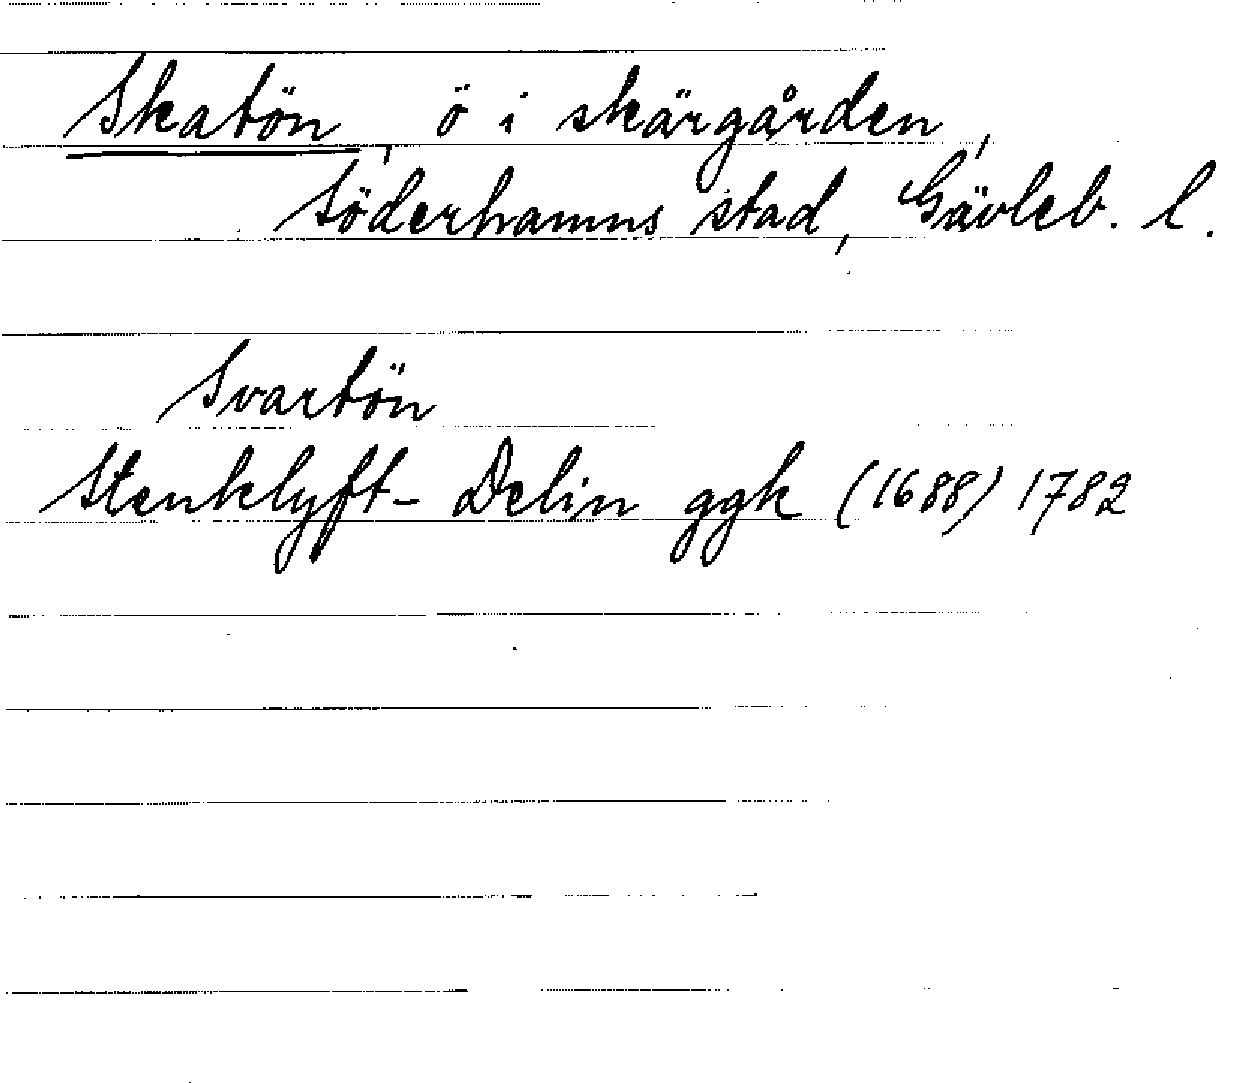 Skatön, ö i skärgården,
Söderhamns stad, Gävleb. l.
Svartön
Stenklyft- Delin ggk (1688) 1782